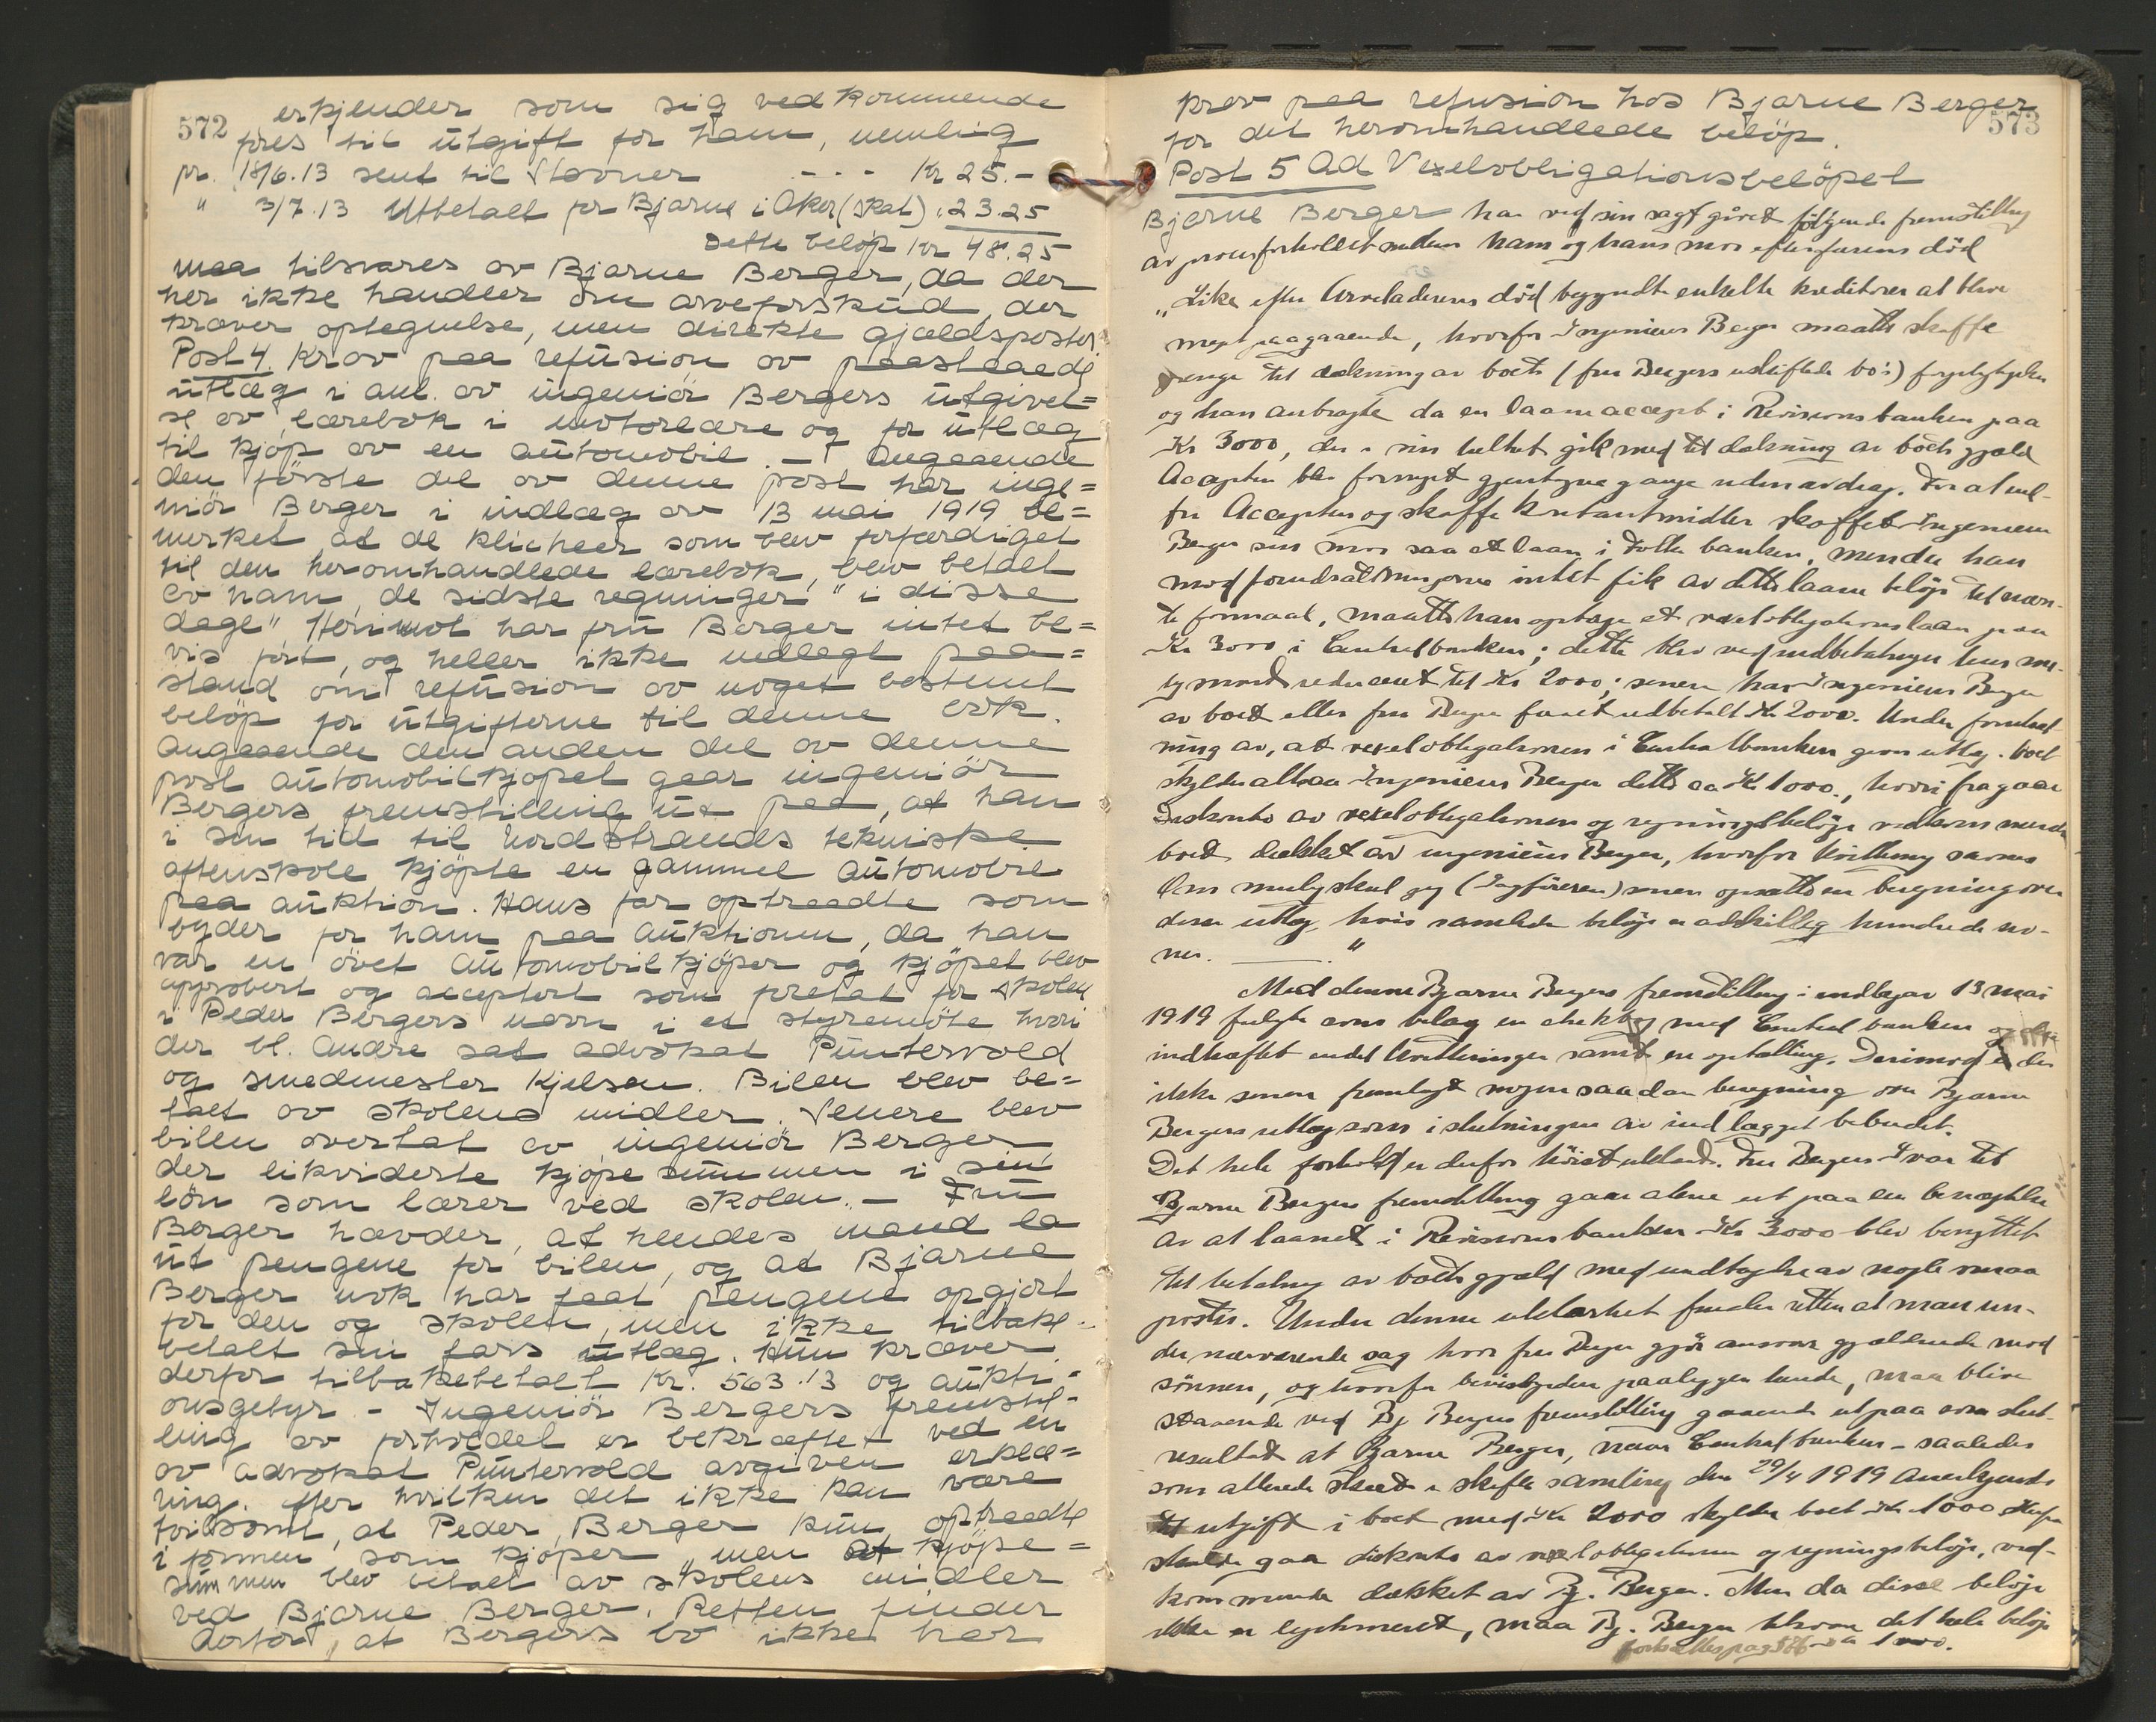 572
erkjender som sig vedkommende
föres til utgift for ham, nemlig
pr. 18/6.13 sent til Stavner - - - Kr 25.-
" 3/7.13 Utbetalt for Bjarne i Aker (skat) " 23.25
Dette belöp Kr 48.25
maa tilsvares av Bjarne Berger, da der
her ikke handler om arveforskud, der
kræver optegnelse, men direkte gjældsposter
Post 4. Krav paa refusion av paastaaede
utlæg i anl. av ingeniör Bergers utgivel=
se av lærebok i motorlære og for utlæg
til kjöp av en automobil. - Angaaende
den förste del av denne post har inge=
niör Berger i indlæg av 13 mai 1919 be=
merket at de klicheer som blev forfærdiget
til den heromhandlede lærebok, blev betalt
av ham, de sidste regninger "i disse
dage". Herimot har fru Berger intet be=
vis fört, og heller ikke nedlagt paa=
stand om refusion av noget bestemt
belöp for utgifterne til denne bok.
Angaaende den anden del av denne
post automobilkjöpet gaar ingeniör
Bergers fremstilling ut paa, at han
i sin tid til Nordstrands tekniske
aftenskole kjöpte en gammel automobil
paa auktion. Hans far optraadte som
byder for ham paa auktionen, da han
var en övet automobilkjöper og kjöpet blev
approbert og acceptert som foretat for skolen
i Peder Bergers navn i et styremöte hvori
der bl. andre sat advokat Puntervold
og smedmester Kjelsen. Bilen blev be=
talt av skolens midler. Senere blev
bilen overtat av ingeniör Berger
der likviderte kjöpesummen i sin
lön som lærer ved skolen. - Fru
Berger hævder, at hendes mand la
ut pengene for bilen, og at Bjarne
Berger nok har faat pengene opgjort
for den og skolen, men ikke tilbake-
betalt sin fars utlæg. Hun kræver
derfor tilbakebetalt Kr. 563.13 og aukti-
onsgebyr. - Ingeniör Bergers fremstil-
ling av forholdet er bekræftet ved en
av advokat Puntervold avgiven erklæ=
ring. efter hvilken det ikke kan være
tvilsomt, at Peder Berger kun optraadte
i formen som kjöper, men at kjöpe=
summen blev betalt av skolens midler
ved Bjarne Berger. Retten finder
derfor, at Bergers bo ikke har
573
krav paa refusion hos Bjarne Berger
for det heromhandlede belöp.
Post 5 Ad Vexelobligationsbelöpet
Bjarne Berger har ved sin sagf givet fölgende fremstilling
av forholdet mellem ham og hans mor efter farens död
"Like efter Arveladerens död begyndte enkelte kreditorer at blive
meget paagaaende, hvorfor Ingeniör Berger maatte skaffe
penge til dækning av boets (fru Bergers uskiftede bo:) forpligtelser
og han anbragte da en laaneaccept i Revisionsbanken paa
Kr 3000, der i sin helhet gik med til dækning av boets gjæld
Accepten blev fornyet gjentagne gange uden avdrag. For at ind-
fri Accepten og skaffe kontantmidler skaffet Ingeniör
Berger sin mor saa et laan i Folkebanken, men da han
mod forudsætningerne intet fik av dette laanebelöp til næv-
te formaal, maatte han optage et vexelobligationslaan paa
Kr 3000 i Centralbanken; dette blev ved indbetalinger
reducert til Kr 2000; senere har Ingeniör Berger
av boet eller fru Berger faaet utbetalt Kr 2000. Under forudsæt-
ning av, at vexelobligationen i Centralbanken boet
skylder altsaa Ingeniör Berger dette ca Kr 1000., hvori fragaar
Diskonto av vexelobligationen og regningsbelöp vedkommende
boet dækket av ingeniör Berger, hvorfor kvittering haves
Om mulig skal jeg (Sagföreren) senere opsætte en beregning over
disse utlæg hvis samlede belöp er adskillig hundrede kro-
ner. ——— "
Med denne Bjarne Bergers fremstilling i indlæg av 13 mai
1919 fulgte som bilag en chekbog med Centralbanken
indhæftet endel kvitteringer samt en optælling. Derimod er der
ikke senere fremlagt nogen saadan beregning over Bjarne
Bergers utlæg som i slutningen av indlægget bebudet.
Det hele forhold er derfor höist uklart. Fru Bergers svar til
Bjarne Bergers fremstilling gaar alene ut paa en benægtelse
av at laanet i Revisionsbanken Kr 3000 blev benyttet
til betaling av boets gjæld med undtagelse av nogle smaa
poster. Under denne uklarhet finder retten at man un-
der nærværende sag hvor fru Berger gjör ansvar gjældende mod
sönnen, og hvorfor bevisbyrden paaligger hende, maa blive
staaende ved Bj Bergers fremstilling gaaende ut paa som slut-
resultat at Bjarne Berger, naar Centralbanken - saaledes
som allerede skeet i skiftesamling den 29/4 1919 anerkjendt
til utgift i boet med Kr 2000 skylder boet Kr 1000
skulde gaa diskonto av vexelobligationen og regningsbelöp, ved-
kommende dækket av Bj. Berger. Men da disse belöp
ikke er legitimeret, maa Bj. Berger tilsvare det hele belöp
1000.